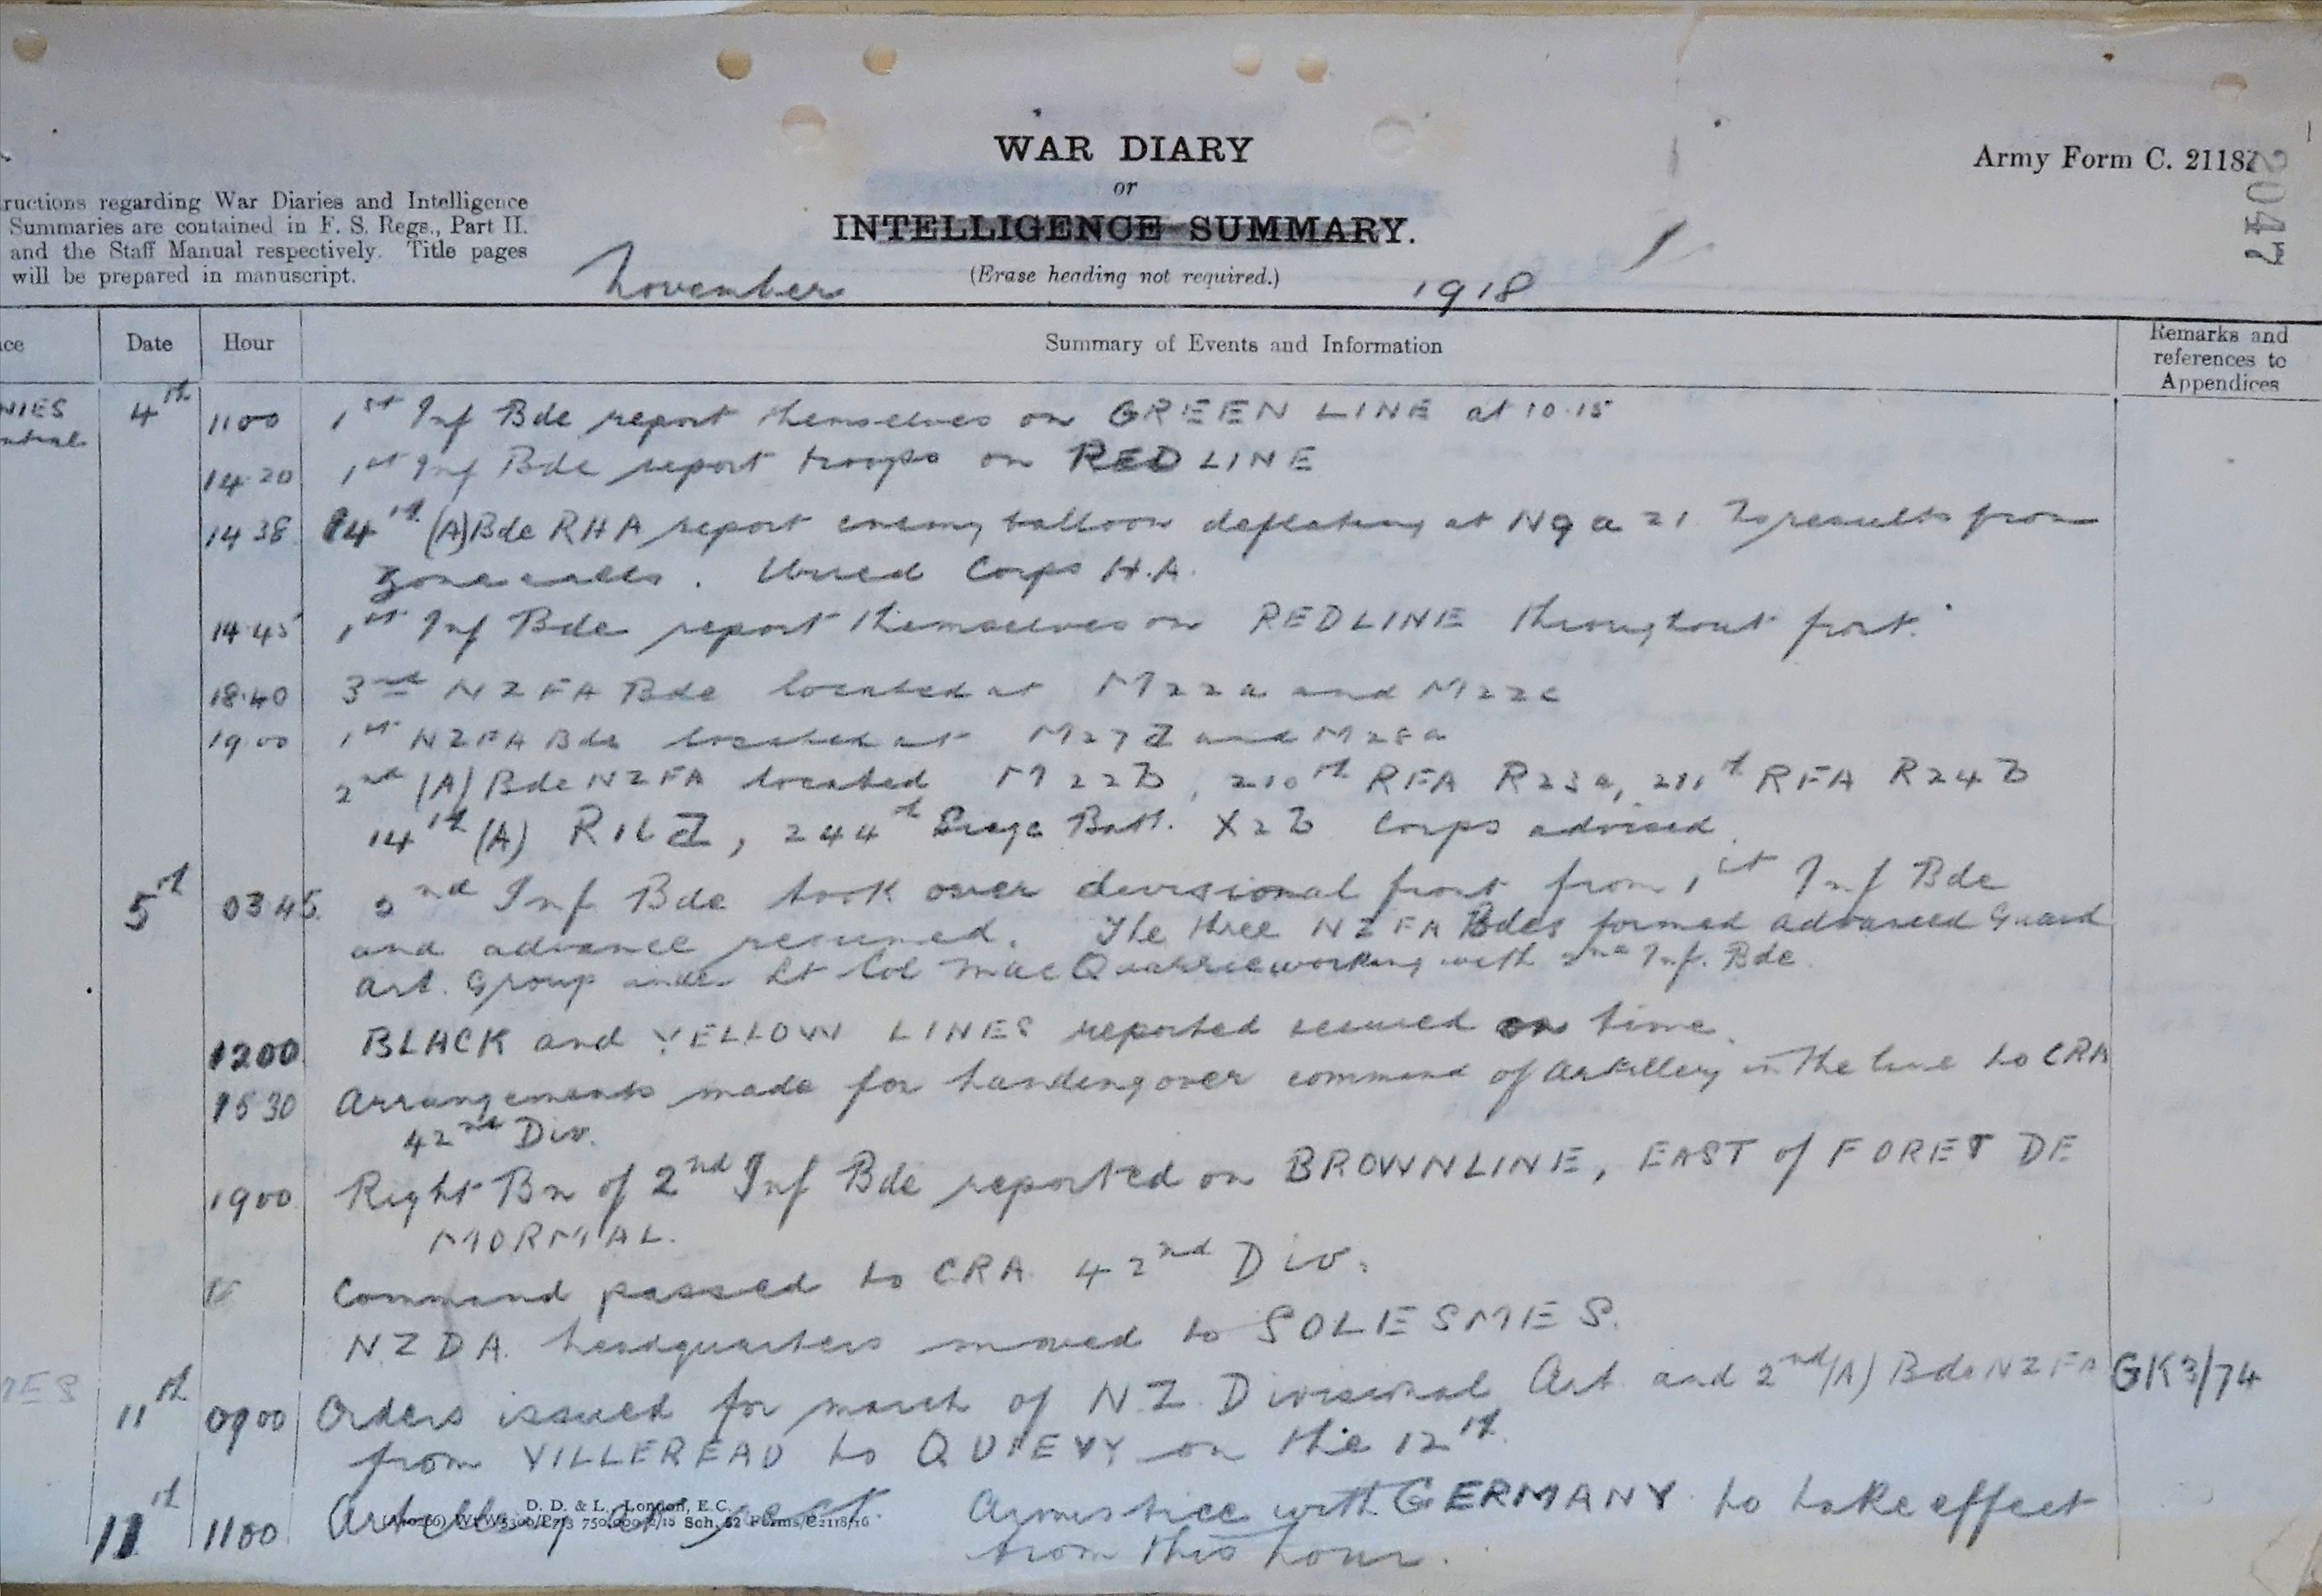 WAR DIARY
or
INTELLIGENCE SUMMARY.
(Erase heading not required.)
Army Form C. 2118.
2047
ructions regarding War Diaries and Intelligence
Summaries are contained in F. S. Regs., Part II.
and the Staff Manual respectively. Title pages
will be prepared in manuscript.
November 1918
ce Date Hour Summary of Events and Information Remarks and references to Appendices
NIES 4th 1100 1st Inf Bde report themselves on GREEN LINE at 10.15
ntral
14.20 1st Inf Bde report troops on RED LINE
14 38 14th (A) Bde RHA report enemy balloon deflating at N9 a 21. No results from
zone calls. Wired Corps H.A.
14.45 1st Inf Bde report themselves on RED LINE throughout front.
18.40 3rd NZFA Bde located at M22a and M22c
19.00 1st NZFA Bde located at M27d and M28a
2nd (A) Bde NZFA located M22b, 210th RFA R23a, 211th RFA R24b
14th (A) R16d, 244th Siege Batt. X2b Corps advised.
5th 03.45 2nd Inf Bde took over divisional front from 1st Inf Bde
and advance resumed. The three NZFA Bdes formed advanced Guard
Art. Group under Lt Col MacQuarrie working with 2nd Inf. Bde.
1200 BLACK and YELLOW LINES reported secured on time.
1530 Arrangements made for handing over command of Artillery in the line to CRA
42nd Div.
1900 Right Bn of 2nd Inf Bde reported on BROWN LINE, EAST of FORET DE
MORMAL.
Command passed to CRA 42nd Div.
N.Z.D.A. headquarters moved to SOLESMES.
MES 11th 0900 Orders issued for march of NZ Divisional Art and 2nd (A) Bde NZFA GK3/74
from VILLEREAU to QUIEVY on the 12th.
11th 1100 Artillery at rest. Armistice with GERMANY to take effect
from this hour.
D. D. & L., London, E.C.
Sch. 52 Forms/C2118/16